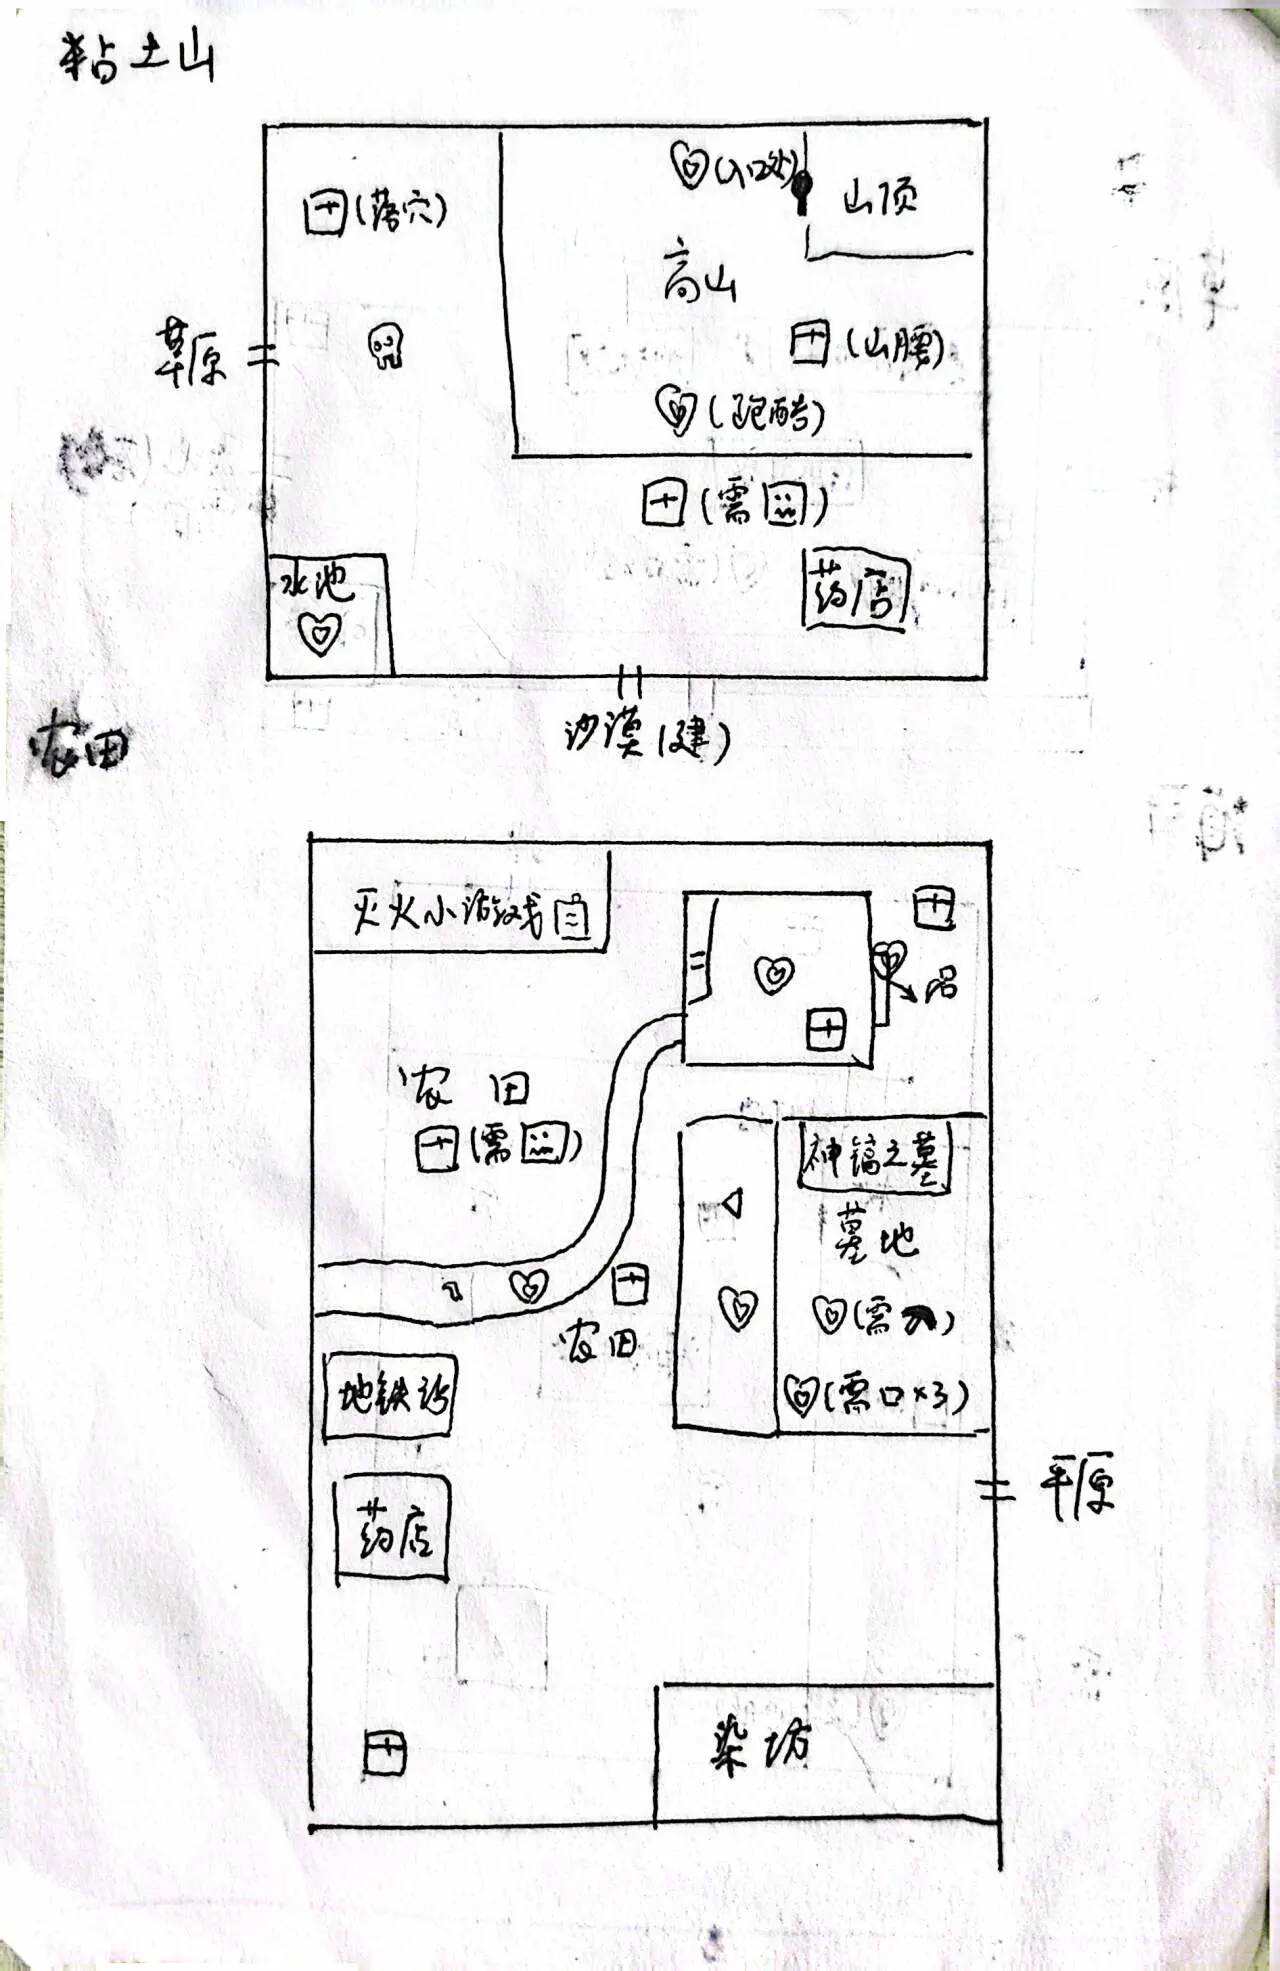 粘土山
(入口处)
山顶
(落穴)
高山
草原
(山腰)
(跑酷)
(需 )
水池
药店
沙漠(建)
农田
灭火小游戏
农田
(需 )
神镐之墓
墓地
农田
(需 )
地铁站
(需口×3)
平原
药店
染坊